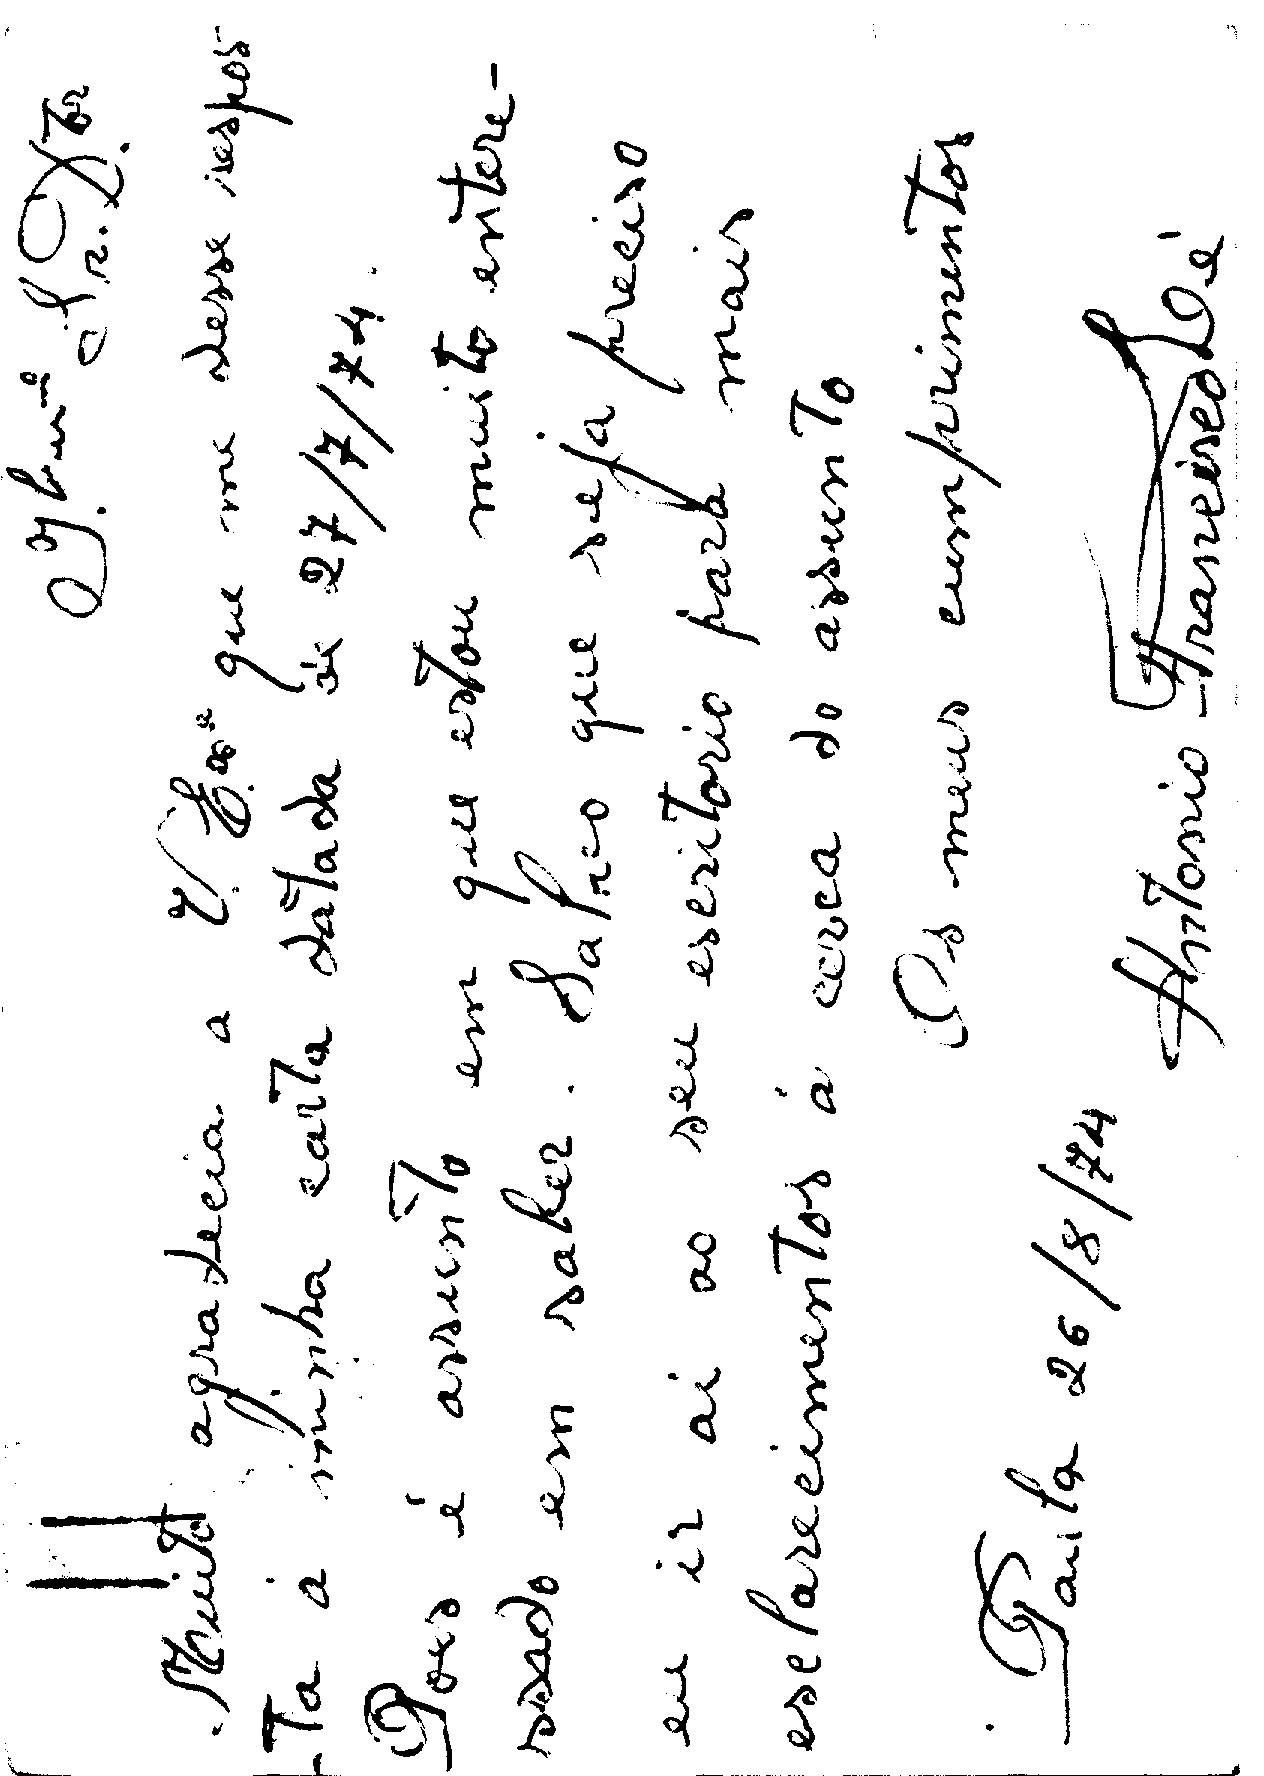 Ilmº Sr. Dtr
Muito agradecia a V. Exª que me desse respos
-ta á minha carta datada de 27/7/74.
Pois é assunto em que estou muito entere-
ssado em saber. Salvo que seja preciso
eu ir ai ao seu escritorio para mais
esclarecimentos á cerca do assunto
Os meus cumprimentos
26/8/74
Antonio Francisco